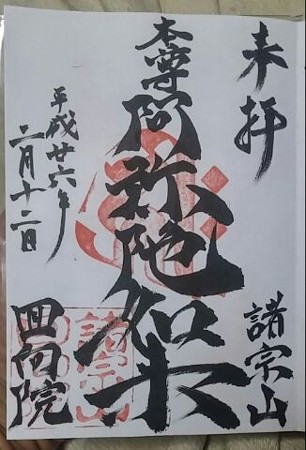 来拝
諸宗山
本尊阿弥陀如来
平成廿六年
二月十二日
回向院